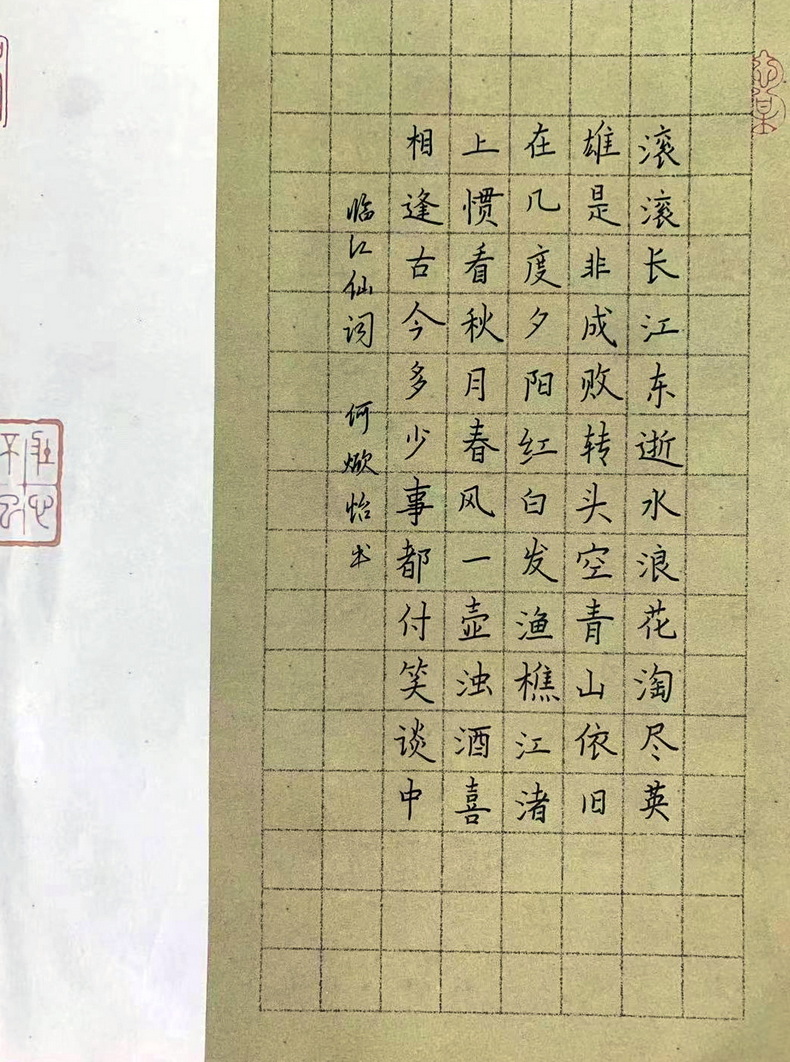 滚滚长江东逝水浪花淘尽英
雄是非成败转头空青山依旧
在几度夕阳红白发渔樵江渚
上惯看秋月春风一壶浊酒喜
相逢古今多少事都付笑谈中
临江仙词 何焮怡书